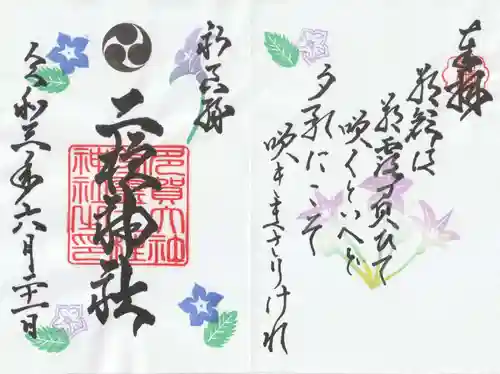 奉拝
朝顔は
朝露負ひて
咲くといへど
夕影にこそ
咲きまさりけれ
二柱神社
令和三年六月二十一日